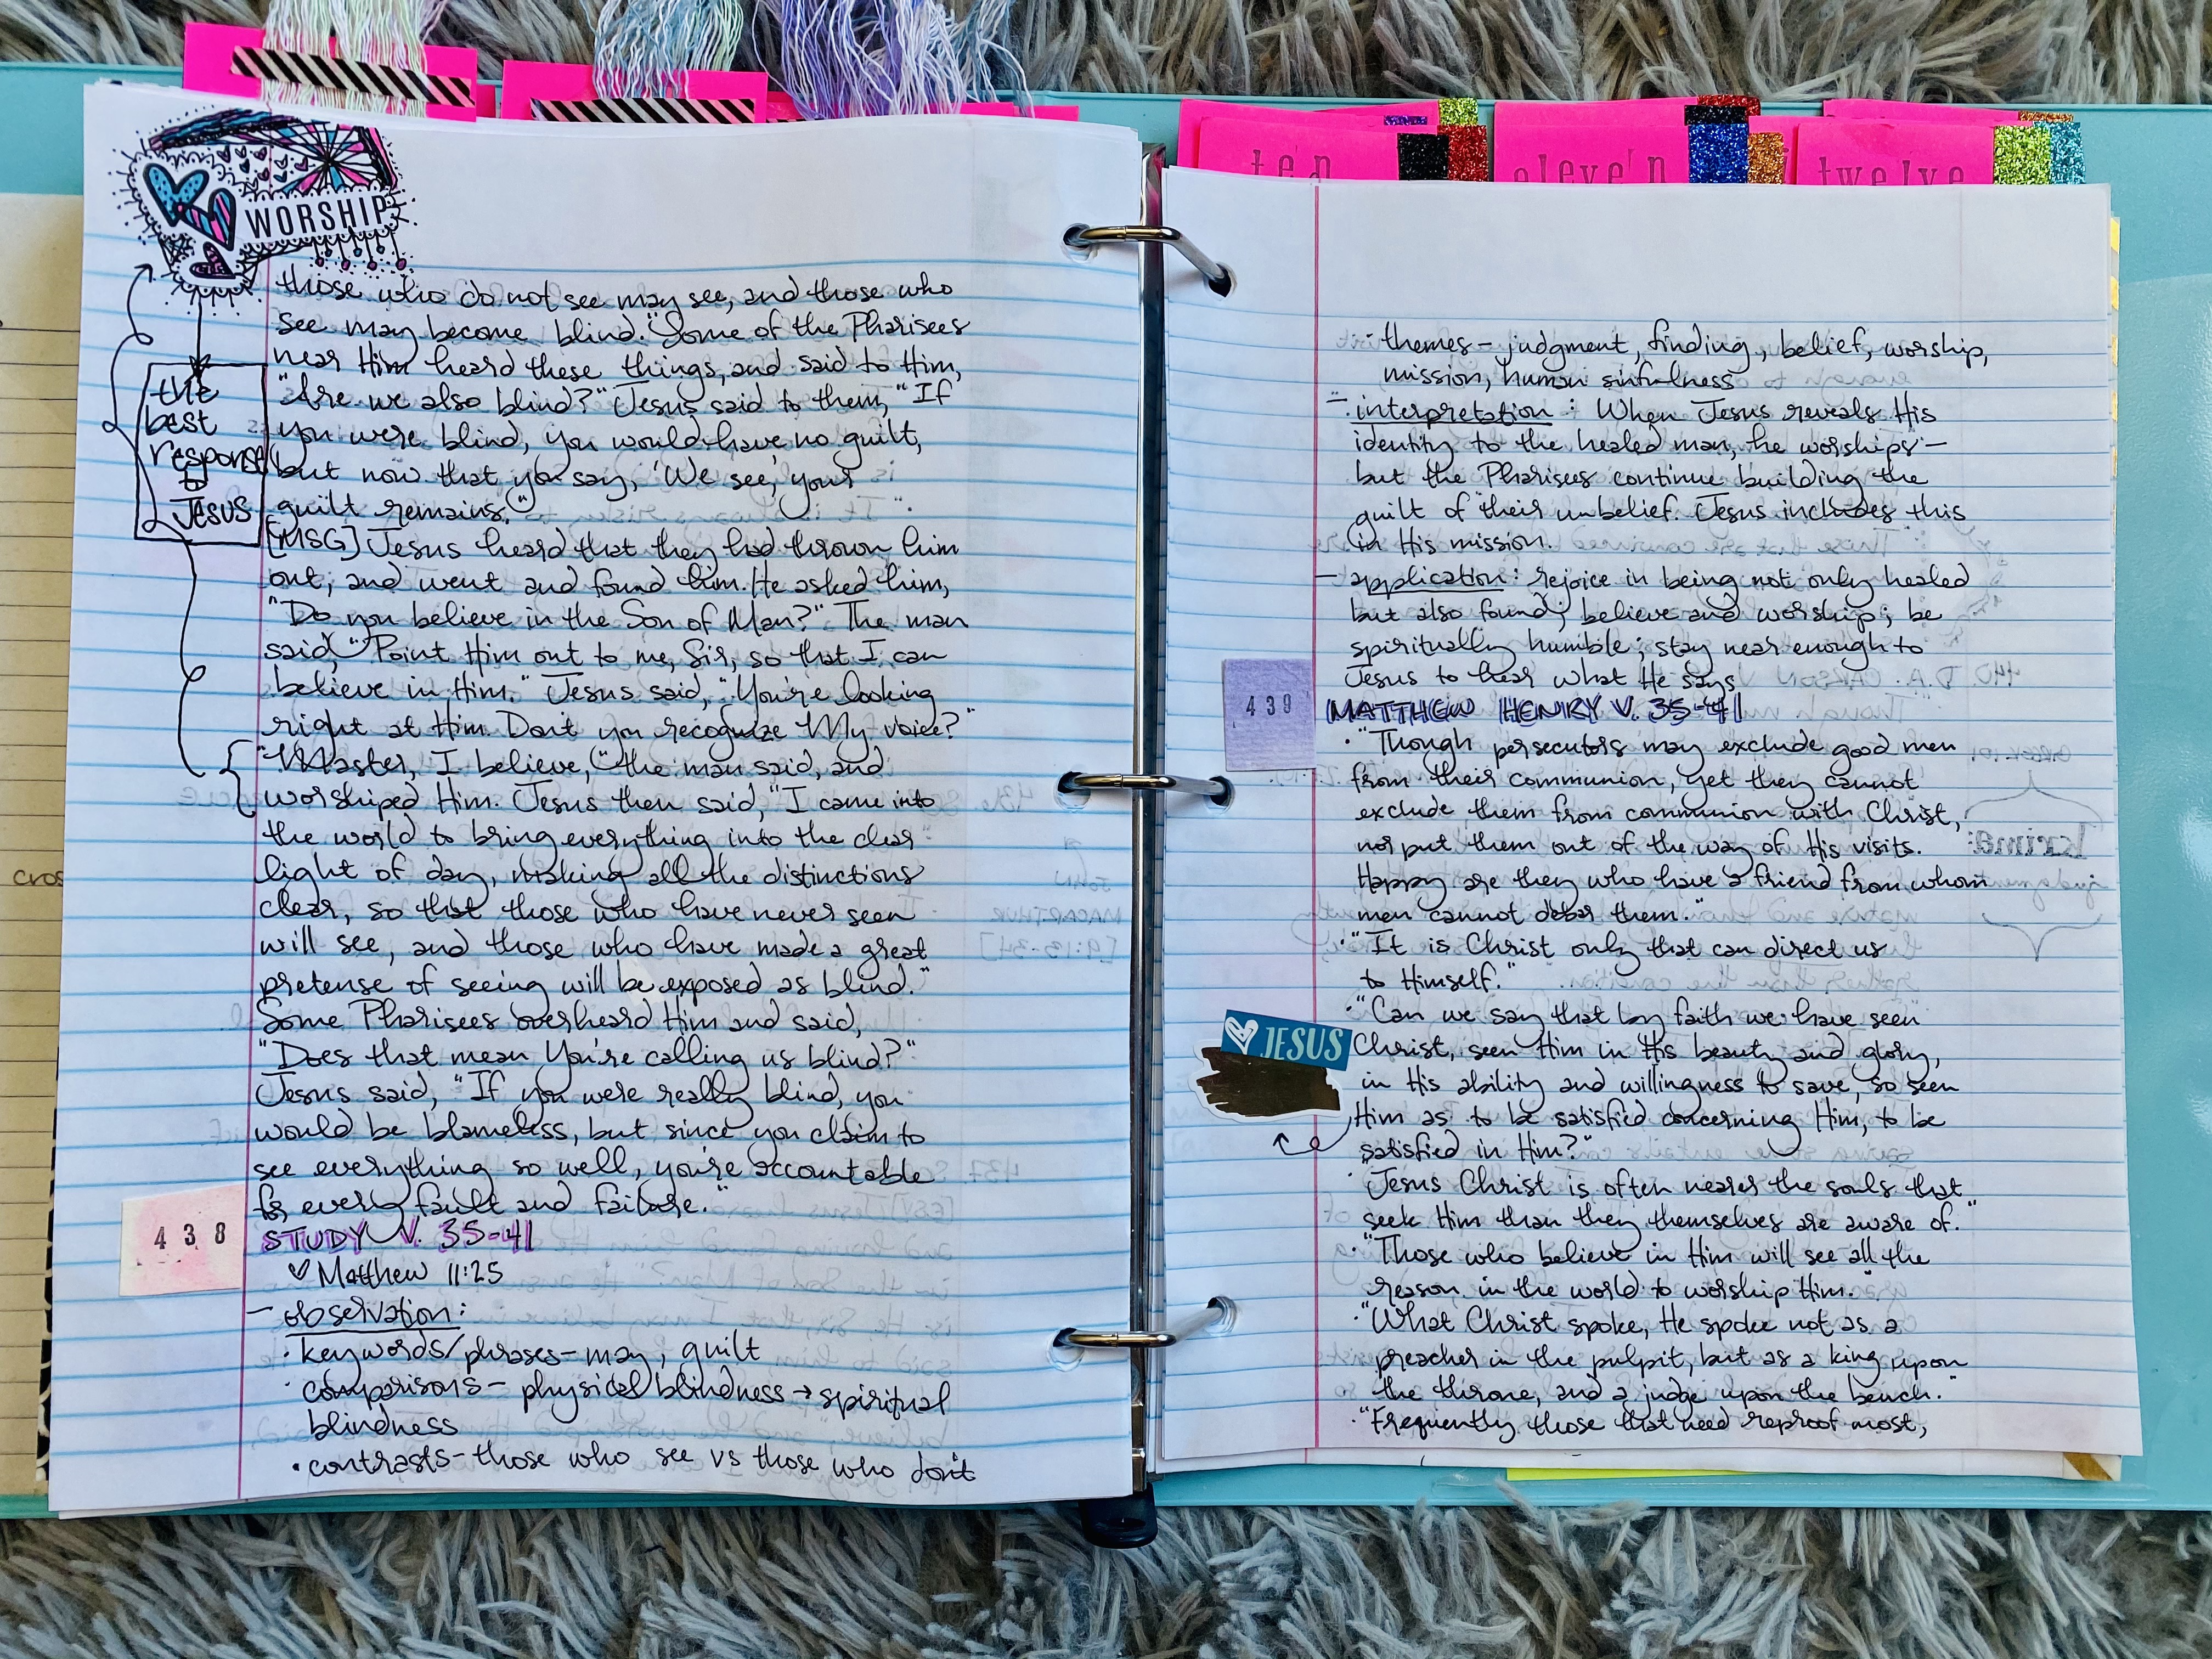 WORSHIP
those who do not see may see, and those who
see may become blind." Some of the Pharisees
near Him heard these things, and said to Him,
"Are we also blind?" Jesus said to them, "If
you were blind, you would have no guilt,
but now that you say, 'We see,' your
guilt remains."
the
best
response
to
JESUS
[MSG] Jesus heard that they had thrown him
out, and went and found him. He asked him,
"Do you believe in the Son of Man?" The man
said, "Point Him out to me, Sir, so that I can
believe in Him." Jesus said, "You're looking
right at Him. Don't you recognize My voice?"
"Master, I believe," the man said, and
worshiped Him. Jesus then said, "I came into
the world to bring everything into the clear
light of day, making all the distinctions
clear, so that those who have never seen
will see, and those who have made a great
pretense of seeing will be exposed as blind."
Some Pharisees overheard Him and said,
"Does that mean You're calling us blind?"
Jesus said, "If you were really blind, you
would be blameless, but since you claim to
see everything so well, you're accountable
for every fault and failure."
438
STUDY V. 35-41
♡ Matthew 11:25
- observation:
· keywords/phrases - may, guilt
· comparisons - physical blindness → spiritual
blindness
· contrasts - those who see vs those who don't
cros
ten
eleven
twelve
· themes - judgment, finding, belief, worship,
mission, human sinfulness
- interpretation: When Jesus reveals His
identity to the healed man, he worships -
but the Pharisees continue building the
guilt of their unbelief. Jesus includes this
in His mission.
- application: rejoice in being not only healed
but also found; believe and worship; be
spiritually humble; stay near enough to
Jesus to hear what He says
439
MATTHEW HENRY V. 35-41
· "Though persecutors may exclude good men
from their communion, yet they cannot
exclude them from communion with Christ,
nor put them out of the way of His visits.
Happy are they who have a friend from whom
men cannot debar them."
· "It is Christ only that can direct us
to Himself."
· "Can we say that by faith we have seen
JESUS
Christ, seen Him in His beauty and glory,
in His ability and willingness to save, so seen
Him as to be satisfied concerning Him, to be
satisfied in Him?"
· "Jesus Christ is often nearer the souls that
seek Him than they themselves are aware of."
· "Those who believe in Him will see all the
reason in the world to worship Him."
· "What Christ spoke, He spoke not as a
preacher in the pulpit, but as a king upon
the throne, and a judge upon the bench."
· "Frequently those that need reproof most,